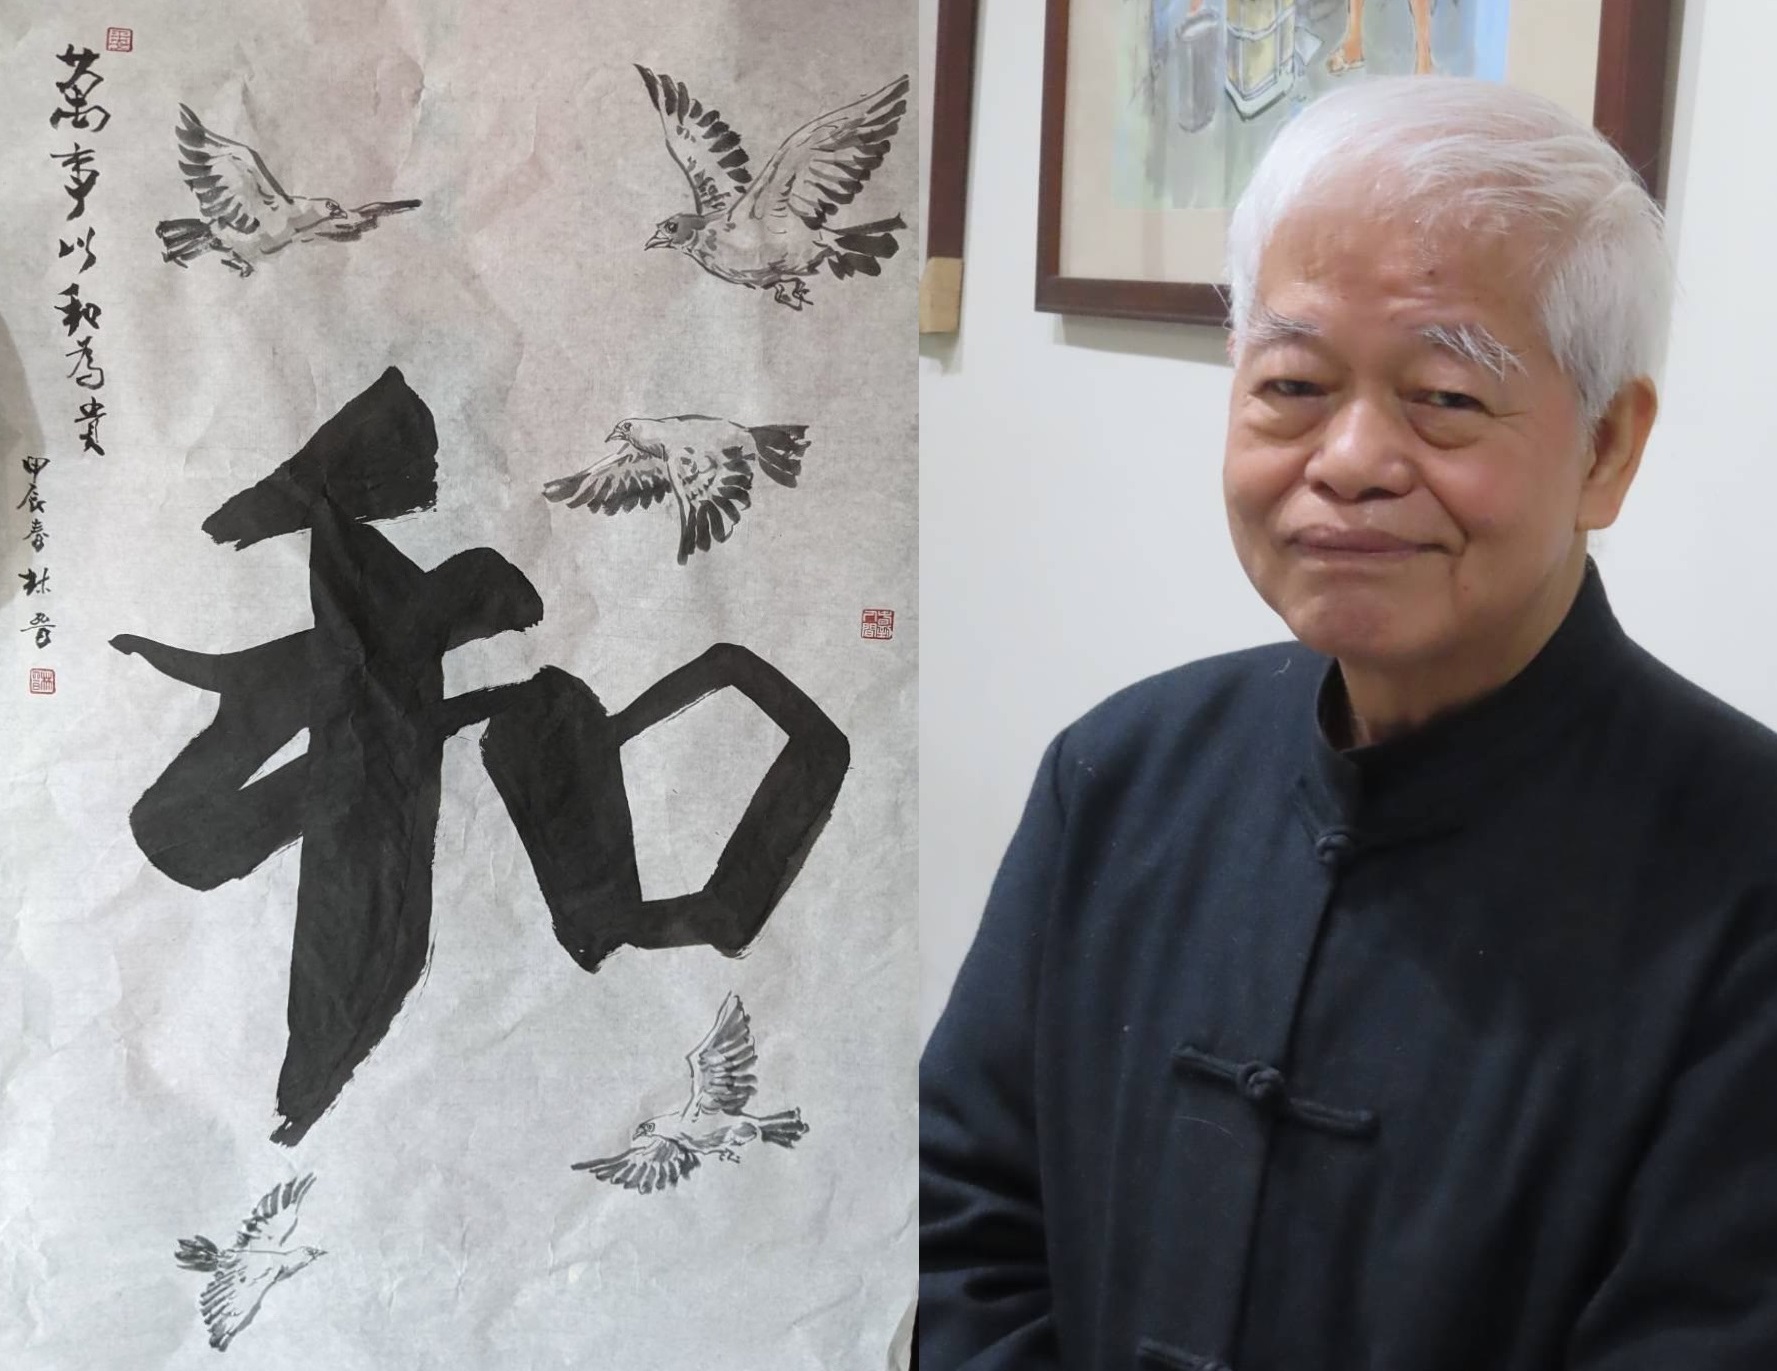 萬事以和為貴
甲辰春 林晉
和